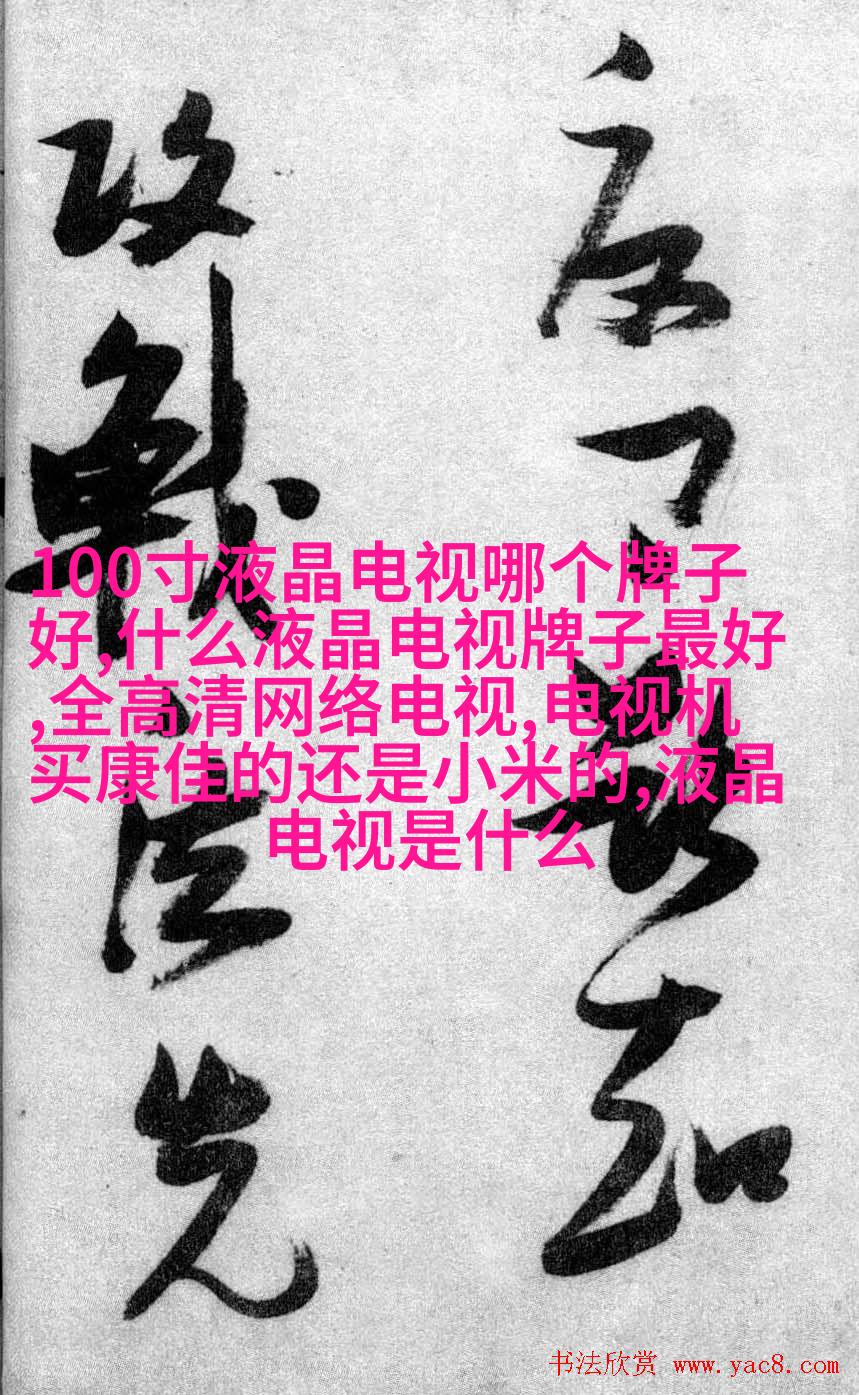 100寸液晶电视哪个牌子
好,什么液晶电视牌子最好
,全高清网络电视,电视机
买康佳的还是小米的,液晶
电视是什么
攻戰
先
知
书法欣赏 www.yac8.com